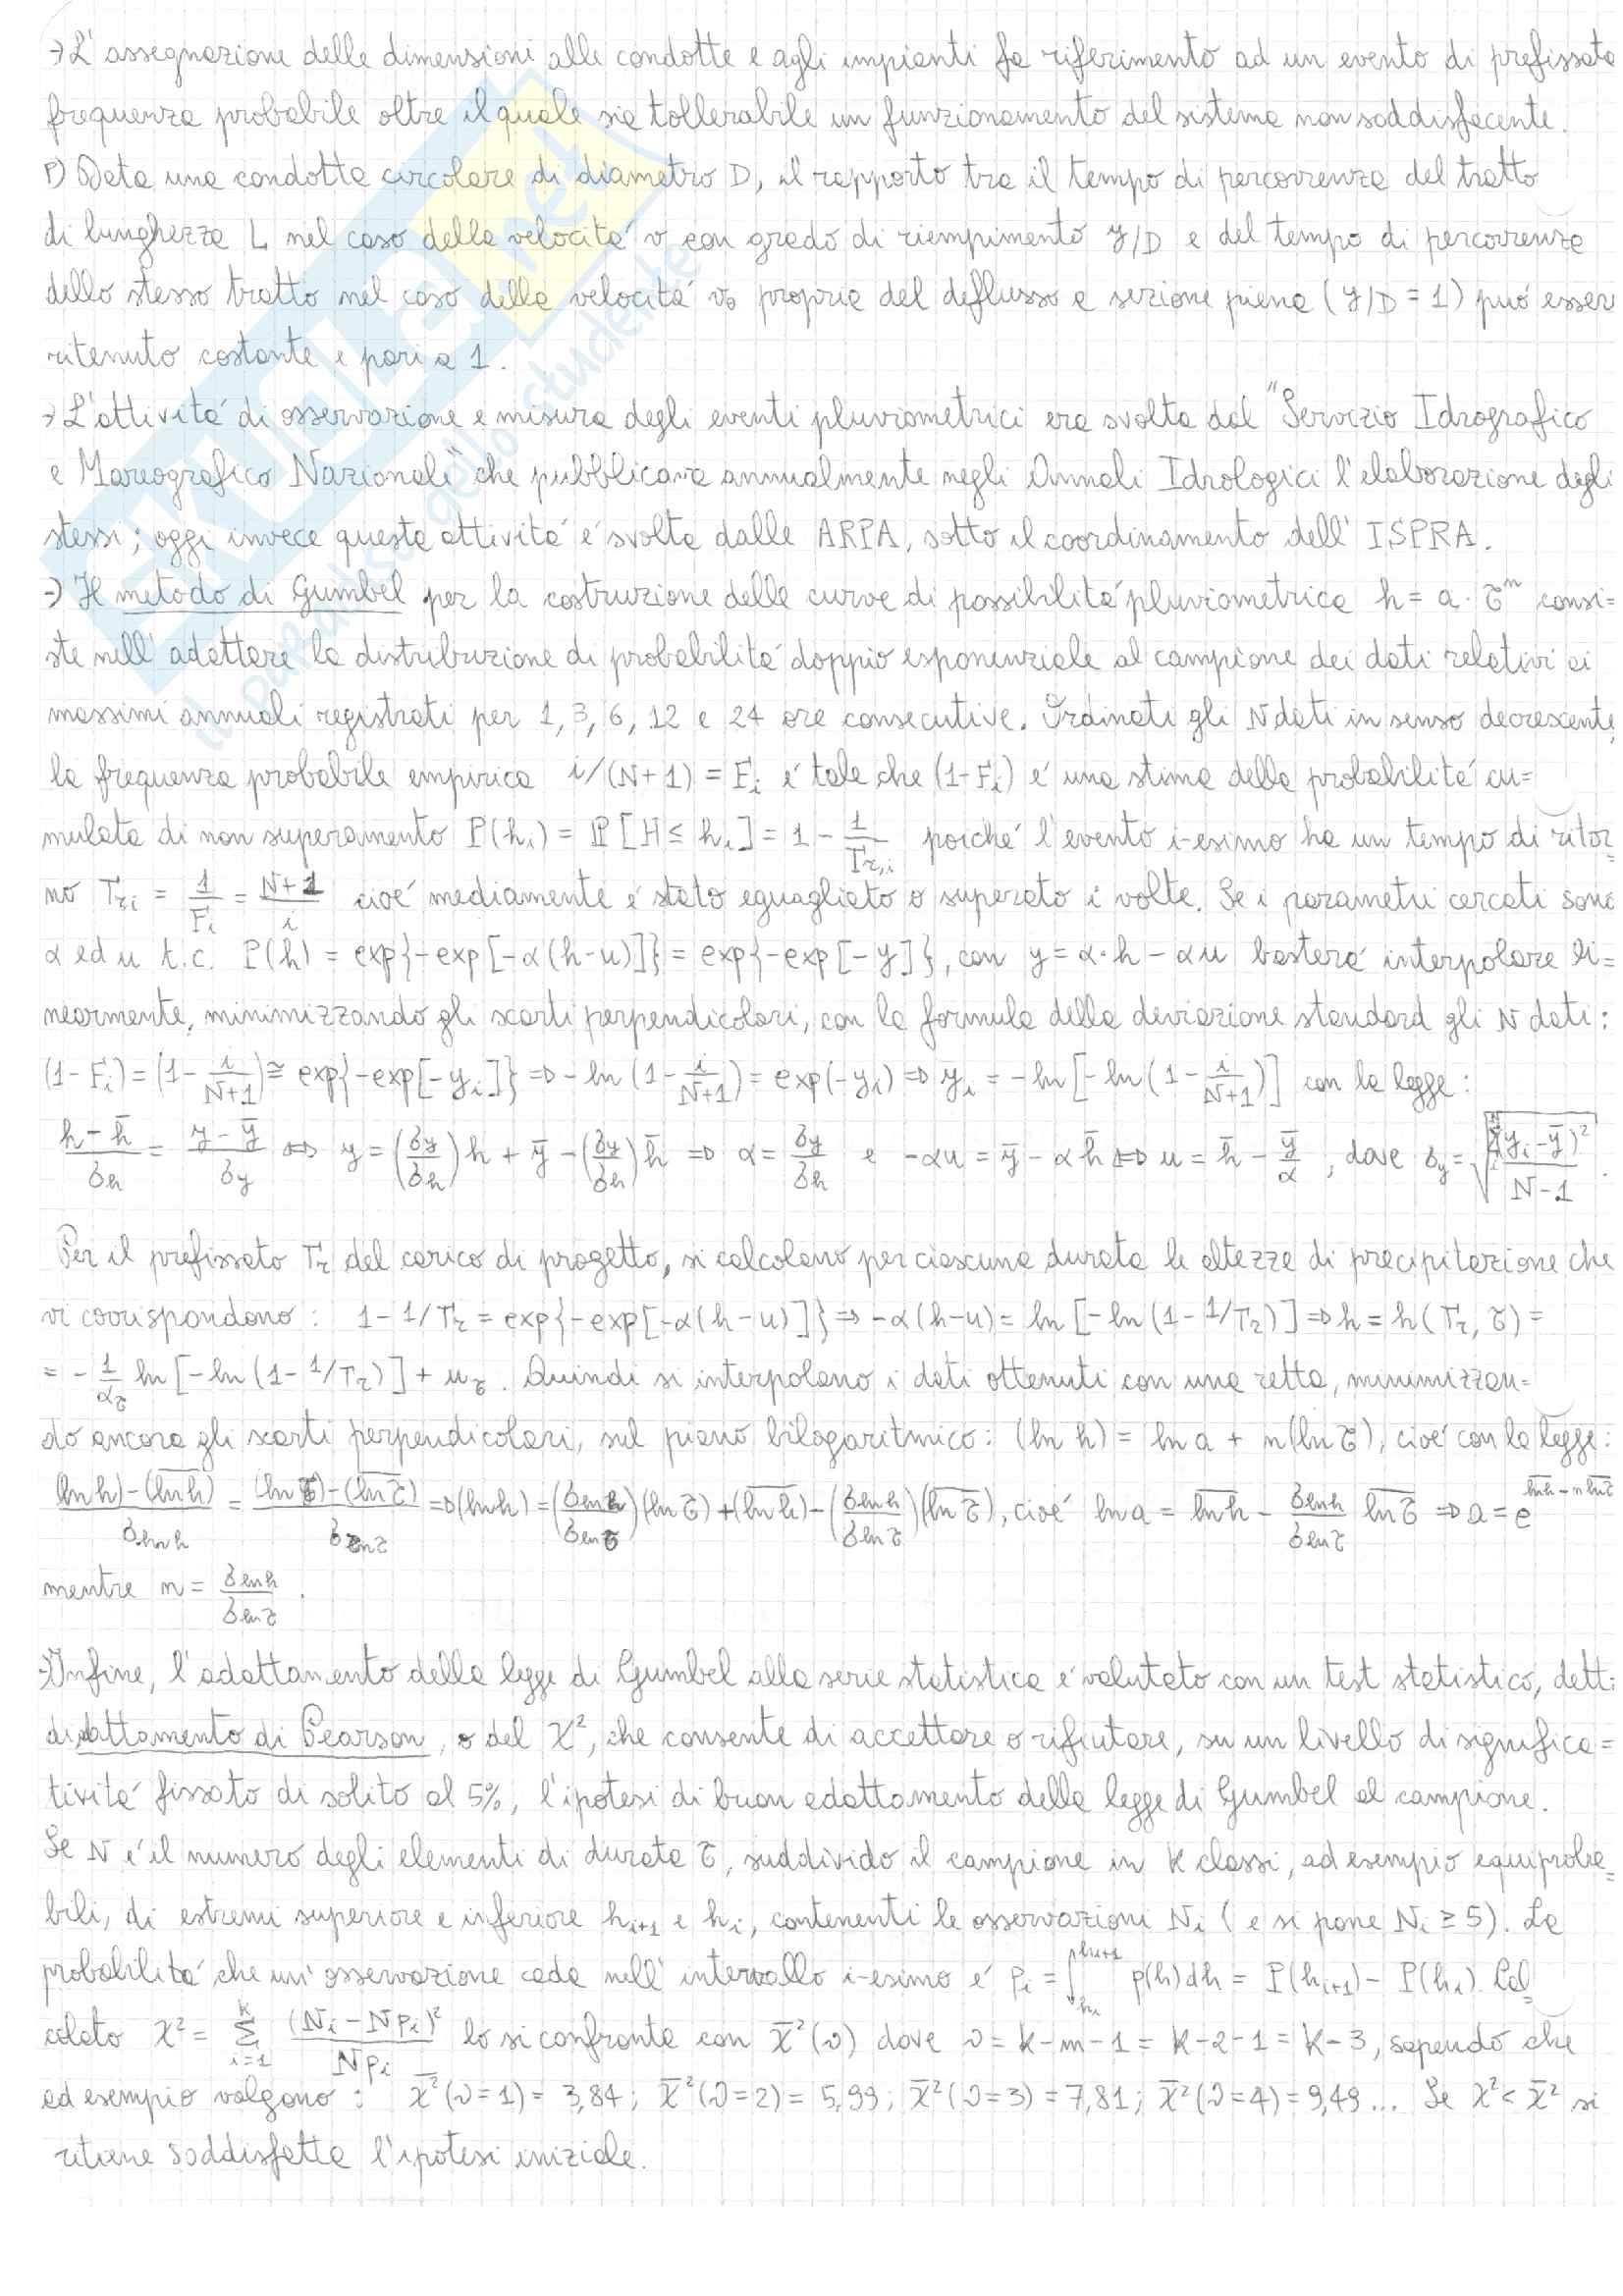 →L'assegnazione delle dimensioni alle condotte e agli impianti fa riferimento ad un evento di prefissata
frequenza probabile oltre il quale sia tollerabile un funzionamento del sistema non soddisfacente.
P) Data una condotta circolare di diametro D, il rapporto tra il tempo di percorrenza del tratto
di lunghezza L nel caso della velocitá v con grado di riempimento y/D e del tempo di percorrenza
dello stesso tratto nel caso della velocitá v₀ propria del deflusso a sezione piena (y/D = 1) puó esser
ritenuto costante e pari a 1.
→L'attivitá di osservazione e misura degli eventi pluviometrici era svolta dal "Servizio Idrografico
e Mareografico Nazionale" che pubblicava annualmente negli Annali Idrologici l'elaborazione degli
stessi; oggi invece questa attivitá é svolta dalle ARPA, sotto il coordinamento dell' ISPRA.
→Il metodo di Gumbel per la costruzione delle curve di possibilitá pluviometrica h = a · τⁿ consi=
ste nell'adattare la distribuzione di probabilitá doppio esponenziale al campione dei dati relativi ai
massimi annuali registrati per 1, 3, 6, 12 e 24 ore consecutive. Ordinati gli N dati in senso decrescente,
la frequenza probabile empirica i/(N+1) = Fᵢ é tale che (1-Fᵢ) é una stima della probabilitá cu=
mulata di non superamento P(hᵢ) = ℙ[H ≤ hᵢ] = 1 - 1/Tr,i poiché l'evento i-esimo ha un tempo di ritor=
no Tri = 1/Fᵢ = (N+1)/i cioé mediamente é stato eguagliato o superato i volte. Se i parametri cercati sono
α ed u t.c. P(h) = exp{-exp[-α(h-u)]} = exp{-exp[-y]}, con y = α·h - αu basterá interpolare li=
nearmente, minimizzando gli scarti perpendicolari, con la formula della deviazione standard gli N dati:
(1-Fᵢ) = (1 - i/(N+1)) ≅ exp{-exp[-yᵢ]} ⇒ -ln(1 - i/(N+1)) = exp(-yᵢ) ⇒ yᵢ = -ln[-ln(1 - i/(N+1))] con la legge:
(h - h̄)/σh = (y - ȳ)/σy ⇔ y = (σy/σh)h + ȳ - (σy/σh)h̄ ⇒ α = σy/σh e -αu = ȳ - αh̄ ⇔ u = h̄ - ȳ/α, dove σy = √(Σ(yᵢ-ȳ)²/(N-1)).
Per il prefissato Tr del carico di progetto, si calcolano per ciascuna durata le altezze di precipitazione che
vi corrispondono: 1 - 1/Tr = exp{-exp[-α(h-u)]} ⇒ -α(h-u) = ln[-ln(1-1/Tr)] ⇒ h = h(Tr, τ) =
= -1/ατ ln[-ln(1-1/Tr)] + uτ. Quindi si interpolano i dati ottenuti con una retta, minimizzan=
do ancora gli scarti perpendicolari, sul piano bilogaritmico: (ln h) = ln a + n(ln τ), cioé con la legge:
((ln h) - (\overline{ln h}))/σln h = ((ln τ) - (\overline{ln τ}))/σln τ ⇒ (ln h) = (σln h/σln τ)(ln τ) + (\overline{ln h}) - (σln h/σln τ)(\overline{ln τ}), cioé ln a = \overline{ln h} - σln h/σln τ \overline{ln τ} ⇒ a = e^(\overline{ln h} - n \overline{ln τ})
mentre n = σln h/σln τ.
→Infine, l'adattamento della legge di Gumbel alla serie statistica é valutato con un test statistico, detto
di adattamento di Pearson, o del χ², che consente di accettare o rifiutare, su un livello di significa=
tivitá fissato di solito al 5%, l'ipotesi di buon adattamento della legge di Gumbel al campione.
Se N é il numero degli elementi di durata τ, suddivido il campione in K classi, ad esempio equiproba=
bili, di estremi superiore e inferiore hᵢ₊₁ e hᵢ, contenenti le osservazioni Nᵢ (e si pone Nᵢ ≥ 5). La
probabilitá che un'osservazione cada nell'intervallo i-esimo é pᵢ = ∫_{hᵢ}^{hᵢ₊₁} p(h)dh = P(hᵢ₊₁) - P(hᵢ). Cal=
colato χ² = Σ_{i=1}^{k} (Nᵢ - Npᵢ)²/Npᵢ lo si confronta con χ̄²(ν) dove ν = K-m-1 = K-2-1 = K-3, sapendo che
ad esempio valgono: χ̄²(ν=1) = 3,84; χ̄²(ν=2) = 5,99; χ̄²(ν=3) = 7,81; χ̄²(ν=4) = 9,49... Se χ² < χ̄² si
ritiene soddisfatta l'ipotesi iniziale.